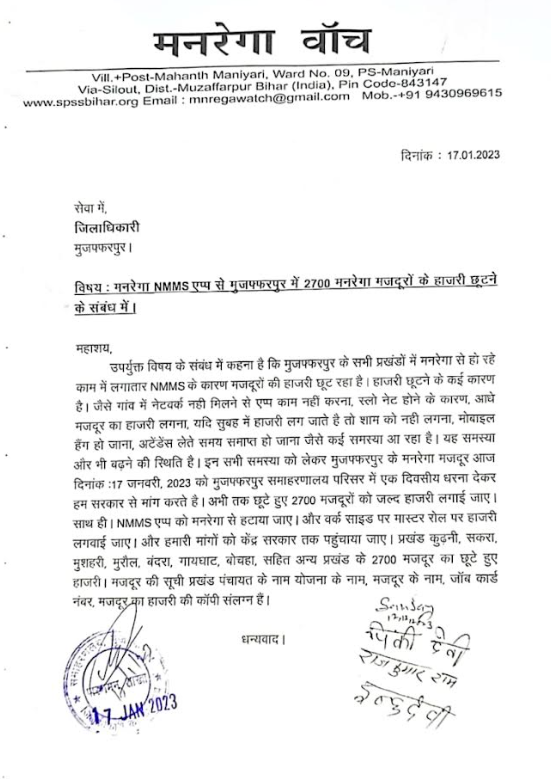 मनरेगा वॉच
Vill.+Post-Mahanth Maniyari, Ward No. 09, PS-Maniyari
Via-Silout, Dist.-Muzaffarpur Bihar (India), Pin Code-843147
www.spssbihar.org Email : mnregawatch@gmail.com Mob.-+91 9430969615
दिनांक : 17.01.2023
सेवा में,
जिलाधिकारी
मुजफ्फरपुर।
विषय : मनरेगा NMMS एप्प से मुजफ्फरपुर में 2700 मनरेगा मजदूरों के हाजरी छूटने
के संबंध में।
महाशय,
उपर्युक्त विषय के संबंध में कहना है कि मुजफ्फरपुर के सभी प्रखंडों में मनरेगा से हो रहे
काम में लगातार NMMS के कारण मजदूरों की हाजरी छूट रहा है। हाजरी छूटने के कई कारण
है। जैसे गांव में नेटवर्क नही मिलने से एप्प काम नहीं करना, स्लो नेट होने के कारण, आधे
मजदूर का हाजरी लगना, यदि सुबह में हाजरी लग जाते है तो शाम को नही लगना, मोबाइल
हैंग हो जाना, अटेंडेंस लेते समय समाप्त हो जाना जैसे कई समस्या आ रहा है। यह समस्या
और भी बढ़ने की स्थिति है। इन सभी समस्या को लेकर मुजफ्फरपुर के मनरेगा मजदूर आज
दिनांक :17 जनवरी, 2023 को मुजफ्फरपुर समाहरणालय परिसर में एक दिवसीय धरना देकर
हम सरकार से मांग करते है। अभी तक छूटे हुए 2700 मजदूरों को जल्द हाजरी लगाई जाए।
साथ ही। NMMS एप्प को मनरेगा से हटाया जाए। और वर्क साइड पर मास्टर रोल पर हाजरी
लगवाई जाए। और हमारी मांगों को केंद्र सरकार तक पहुंचाया जाए। प्रखंड कुढ़नी, सकरा,
मुशहरी, मुरौल, बंदरा, गायघाट, बोचहा, सहित अन्य प्रखंड के 2700 मजदूर का छूटे हुए
हाजरी। मजदूर की सूची प्रखंड पंचायत के नाम योजना के नाम, मजदूर के नाम, जॉब कार्ड
नंबर, मजदूर का हाजरी की कॉपी संलग्न हैं।
धन्यवाद।
Sanjay
पिंकी देवी
राजकुमार राम
इन्दु देवी
17 JAN 2023